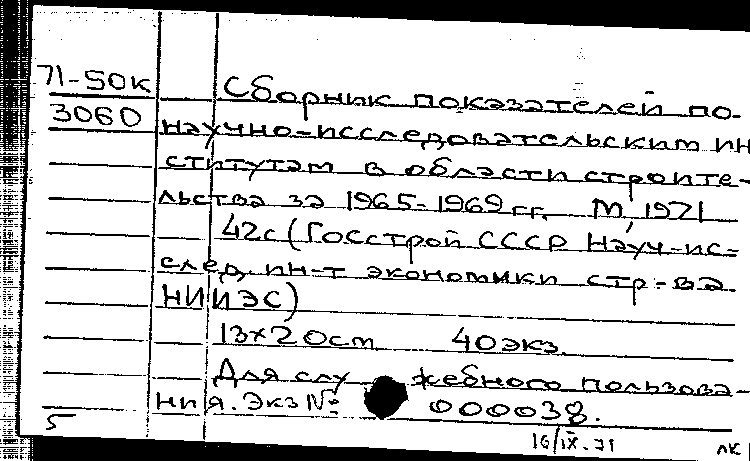 71-50к Сборник показателей по
3060 научно-исследовательским ин
ститутам в области строите-
льства за 1965-1969 гг. М, 1971
42с (Госстрой СССР Науч-ис-
след. ин-т экономики стр-ва
НИИЭС)
13х20 ст 40 экз.
Для служебного пользова-
ния. Экз № 000038.
5
16/IX.71 ЛК